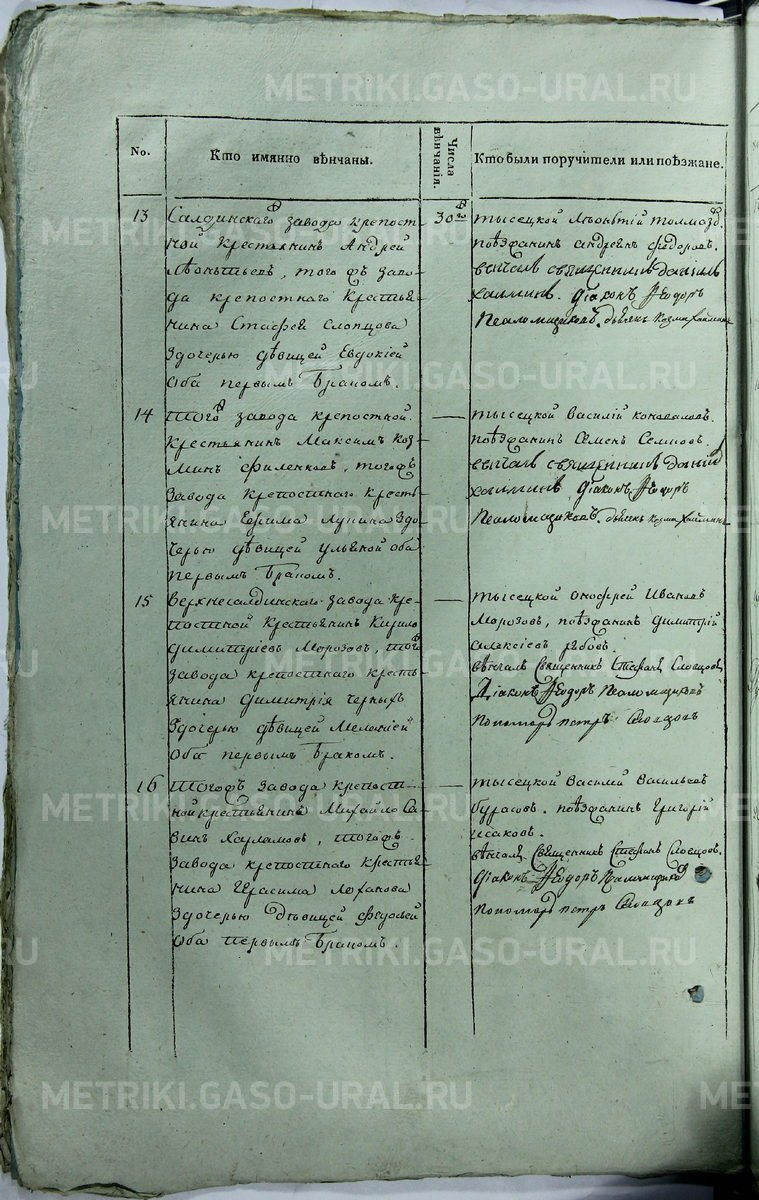 No.
Кто имянно вѣнчаны.
Числа вѣнчанія.
Кто были поручители или поѣзжане.
13
Салдинскаго завода крепост-
ной крестьянинъ Андрей
Леонтьевъ, того жъ заво-
да крепостнаго крестья-
нина Стафея Слопцова
здочерью дѣвицей Евдокіей
оба первымъ бракомъ.
30го
тысецкой Леонтій
поѣзжанинъ андреянъ федоровъ.
венчалъ священникъ Даніилъ
Хлминъ. Діаконъ Ѳеодоръ
Псаломщиковъ. дьячекъ козма
14
Того завода крепостной
крестьянинъ Максимъ Коз-
минъ филенковъ, тогожъ
завода крепостнаго кресть-
янина Ефима Лупина здо-
черью дѣвицей ульяной оба
первымъ бракомъ.
тысецкой Василій коноваловъ.
поѣзжанинъ Семенъ
венчалъ священникъ Даніил
Діаконъ Ѳеодоръ
Псаломщиковъ. дьячекъ козма
15
Верхнесалдинскаго завода кре-
постной крестьянинъ Кирило
Димитріевъ Морозовъ, того
завода крепостнаго кресть-
янина Димитрія Черныхъ
здочерью дѣвицей Меланіей
оба первымъ бракомъ.
тысецкой Онофрей Ивановъ
Морозовъ, поѣзжанинъ Димитрій
алексіевъ рябовъ.
вѣнчалъ Священникъ Стефанъ Словцовъ
Діаконъ Ѳеодоръ Псаломщиковъ
Пономарь петръ Словцовъ
16
Тогожъ завода крепост-
ной крестьянинъ Михайло Са-
винъ Харламовъ, тогожъ
завода крепостнаго крестья-
нина Герасима Лоханова
здочерью дѣвицей федосьей
оба первымъ бракомъ.
тысецкой Василій Васильевъ
бурасовъ. поѣзжанинъ Григорій
исаковъ.
вѣнчалъ Священникъ Стефанъ Словцовъ.
Діаконъ Ѳеодоръ Псаломщиковъ
Пономарь петръ Словцовъ
METRIKI.GASO-URAL.RU